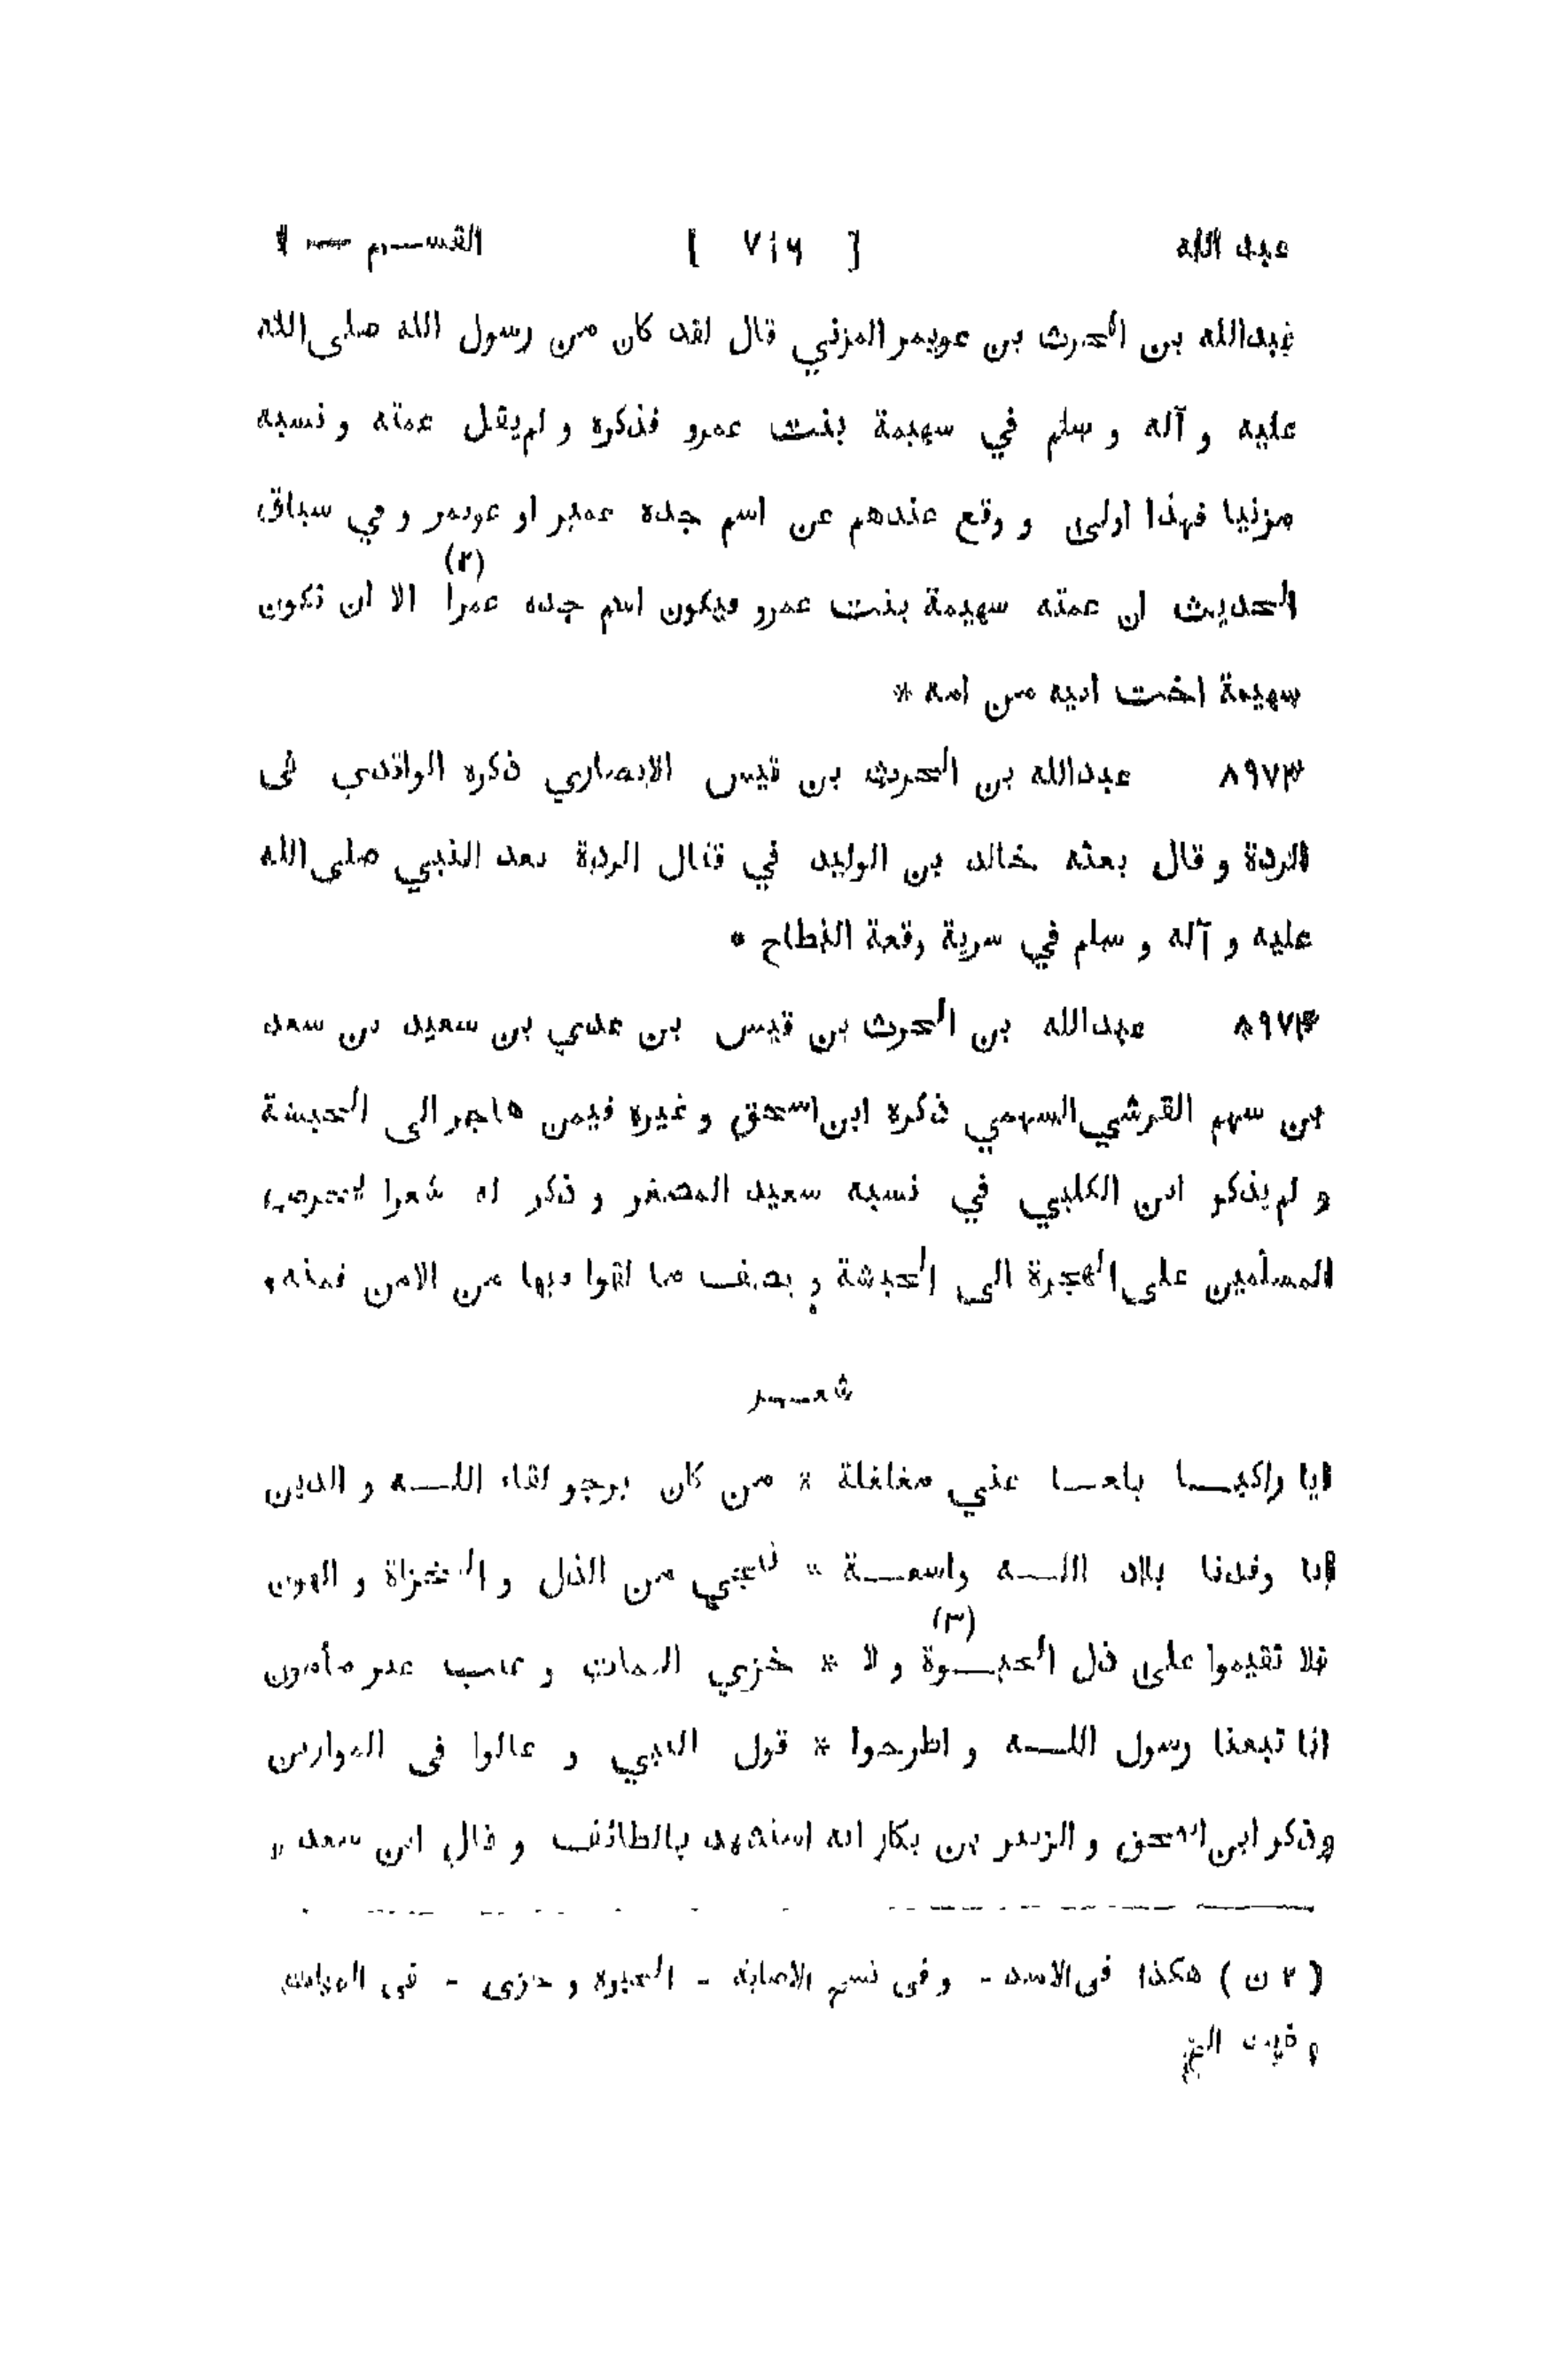 عبد الله [ ٧١٦ ] القســم — ١
عبدالله بن الحرث بن عويمر المزني قال لقد كان من رسول الله صلى الله
عليه و آله و سلم في سهيمة بنت عمرو فذكره و لم يقل عمته و نسبه
مزنيا فهذا اولى و وقع عندهم عن اسم جده عمير او عويمر و في سياق
الحديث ان عمته سهيمة بنت عمرو فيكون اسم جده عمرا (٢) الا ان تكون
سهيمة اخت ابيه من امه *
٨٩٧٣ عبدالله بن الحرث بن قيس الانصاري ذكره الواقدي فى
الردة و قال بعثه خالد بن الوليد في قتال الردة بعد النبي صلى الله
عليه و آله و سلم في سرية وقعة البطاح *
٨٩٧٤ عبدالله بن الحرث بن قيس بن عدي بن سعيد بن سعد
بن سهم القرشي السهمي ذكره ابن اسحق و غيره فيمن هاجر الى الحبشة
و لم يذكر ابن الكلبي في نسبه سعيد المصغر و ذكر له شعرا يحرض
المسلمين على الهجرة الى الحبشة و يصف ما لقوا فيها من الامن فمنه،
شعــر
ايا راكبــا بلغــا عني مغلغلة * من كان يرجو لقاء اللــه و الدين
انا وجدنا بلاد اللــه واسعــة * تنجي من الذل و المخزاة و الهون
فلا تقيموا على ذل الحيــوة (٣) و لا * خزي الممات و عيب غير مأمون
انا تبعنا رسول اللــه و اطرحوا * قول النبي و عالوا فى الموازين
وذكر ابن اسحق و الزبير بن بكار انه استشهد بالطائف و قال ابن سعد و
( ٢ ن ) هكذا فى الاسد - و فى نسخ الاصابة - الحيوة و حزى - فى
و الخ